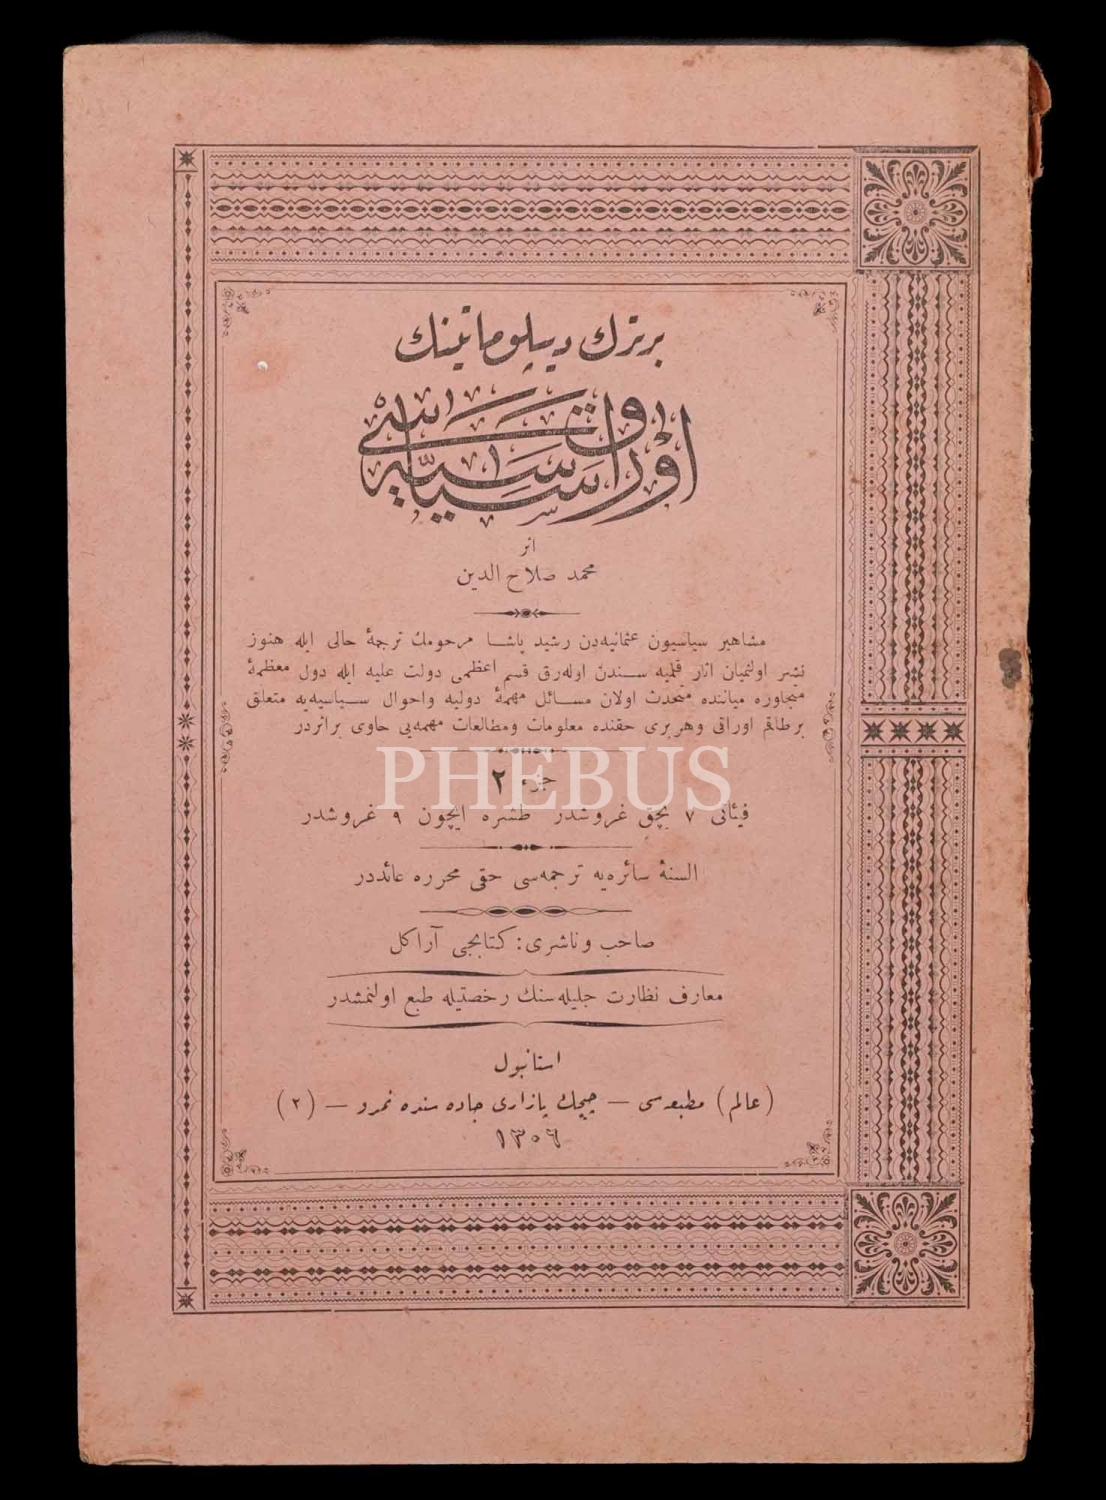 بر ترك ديپلوماتينك
اوراق سياسيه سى
اثر
محمد صلاح الدين
مشاهير سياسيون عثمانيه‌دن رشيد پاشا مرحومك ترجمهٔ حالى ايله هنوز
نشر اولنميان اثار قلميه سندن اوله‌رق قسم اعظمى دولت عليه ايله دول معظمهٔ
متجاوره مياننده متحدث اولان مسائل مهمهٔ دوليه و احوال سياسيه‌يه متعلق
بر طاقم اوراقى و هر برى حقنده معلومات و مطالعات مهمه‌يى حاوى بر اثردر
PHEBUS
جزء ٢
فيئاتى ٧ بچق غروشدر طشره ايچون ٩ غروشدر
السنهٔ سائره‌يه ترجمه‌سى حقى محرره عائددر
صاحب و ناشرى: كتابجى آراكل
معارف نظارت جليله‌سنك رخصتيله طبع اولنمشدر
استانبول
(عالم) مطبعه‌سى — چيچك پازارى جاده سنده نمرو — (٢)
١٣٠٦